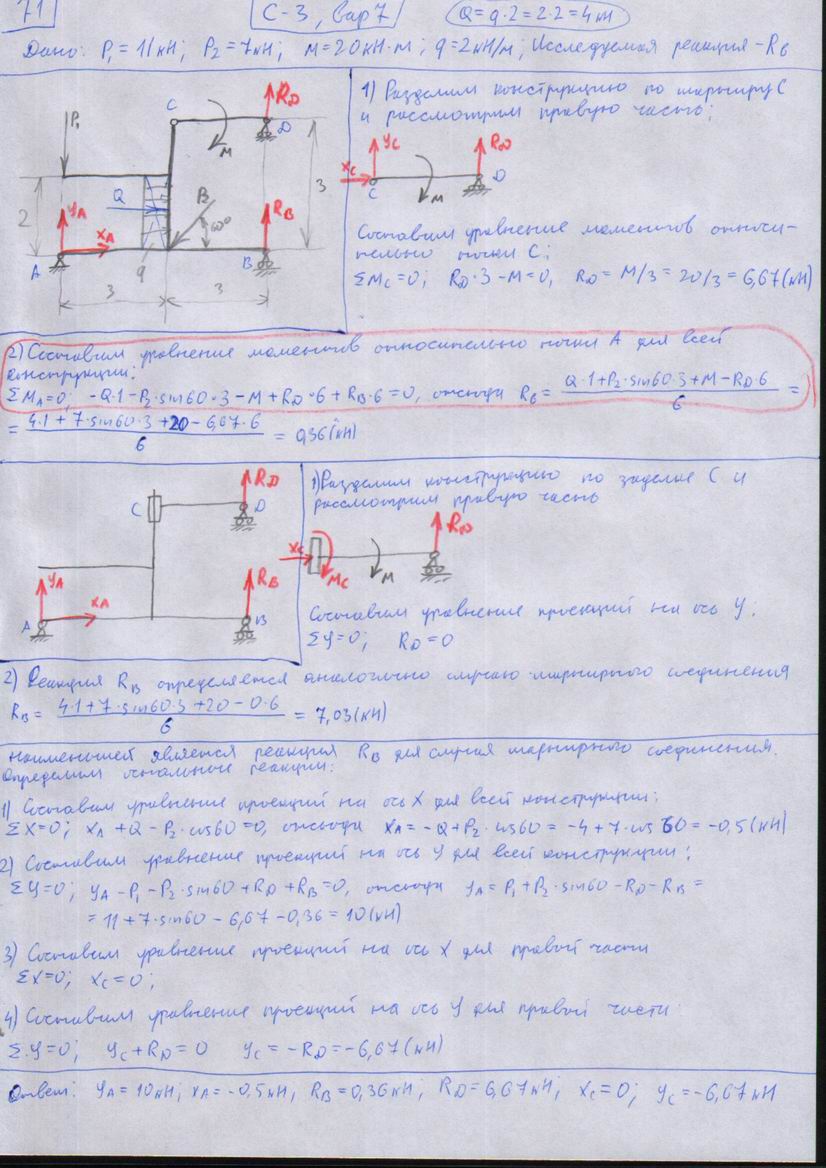 71
С-3, вар7
Q=q·2=2·2=4кН
Дано: P₁=11кН; P₂=7кН; M=20кН·м; q=2кН/м; Исследуемая реакция -R_B
P₁
C
M
R_D
D
2
Y_A
X_A
A
Q
q
P₂
60°
R_B
B
3
3
3
1) Разделим конструкцию по шарниру C
и рассмотрим правую часть;
Y_C
X_C
C
M
R_D
D
Составим уравнение моментов относи-
тельно точки C:
ΣM_C=0; R_D·3-M=0, R_D=M/3=20/3=6,67(кН)
2) Составим уравнение моментов относительно точки A для всей
конструкции:
ΣM_A=0; -Q·1-P₂·sin60·3-M+R_D·6+R_B·6=0, отсюда R_B= (Q·1+P₂·sin60·3+M-R_D·6)/6 =
= (4·1+7·sin60·3+20-6,67·6)/6 = 0,36(кН)
C
R_D
D
Y_A
X_A
A
R_B
B
1) Разделим конструкцию по заделке C и
рассмотрим правую часть
X_C
M_C
M
R_D
Составим уравнение проекций на ось Y:
ΣY=0; R_D=0
2) Реакция R_B определяется аналогично случаю шарнирного соединения
R_B= (4·1+7·sin60·3+20-0·6)/6 = 7,03(кН)
Наименьшей является реакция R_B для случая шарнирного соединения.
Определим остальные реакции:
1) Составим уравнение проекций на ось X для всей конструкции:
ΣX=0; X_A+Q-P₂·cos60=0, отсюда X_A=-Q+P₂·cos60=-4+7·cos60=-0,5(кН)
2) Составим уравнение проекций на ось Y для всей конструкции;
ΣY=0; Y_A-P₁-P₂·sin60+R_D+R_B=0, отсюда Y_A=P₁+P₂·sin60-R_D-R_B=
=11+7·sin60-6,67-0,36=10(кН)
3) Составим уравнение проекций на ось X для правой части
ΣX=0; X_C=0;
4) Составим уравнение проекций на ось Y для правой части
ΣY=0; Y_C+R_D=0 Y_C=-R_D=-6,67(кН)
Ответ: Y_A=10кН; X_A=-0,5кН, R_B=0,36кН; R_D=6,67кН; X_C=0; Y_C=-6,67кН